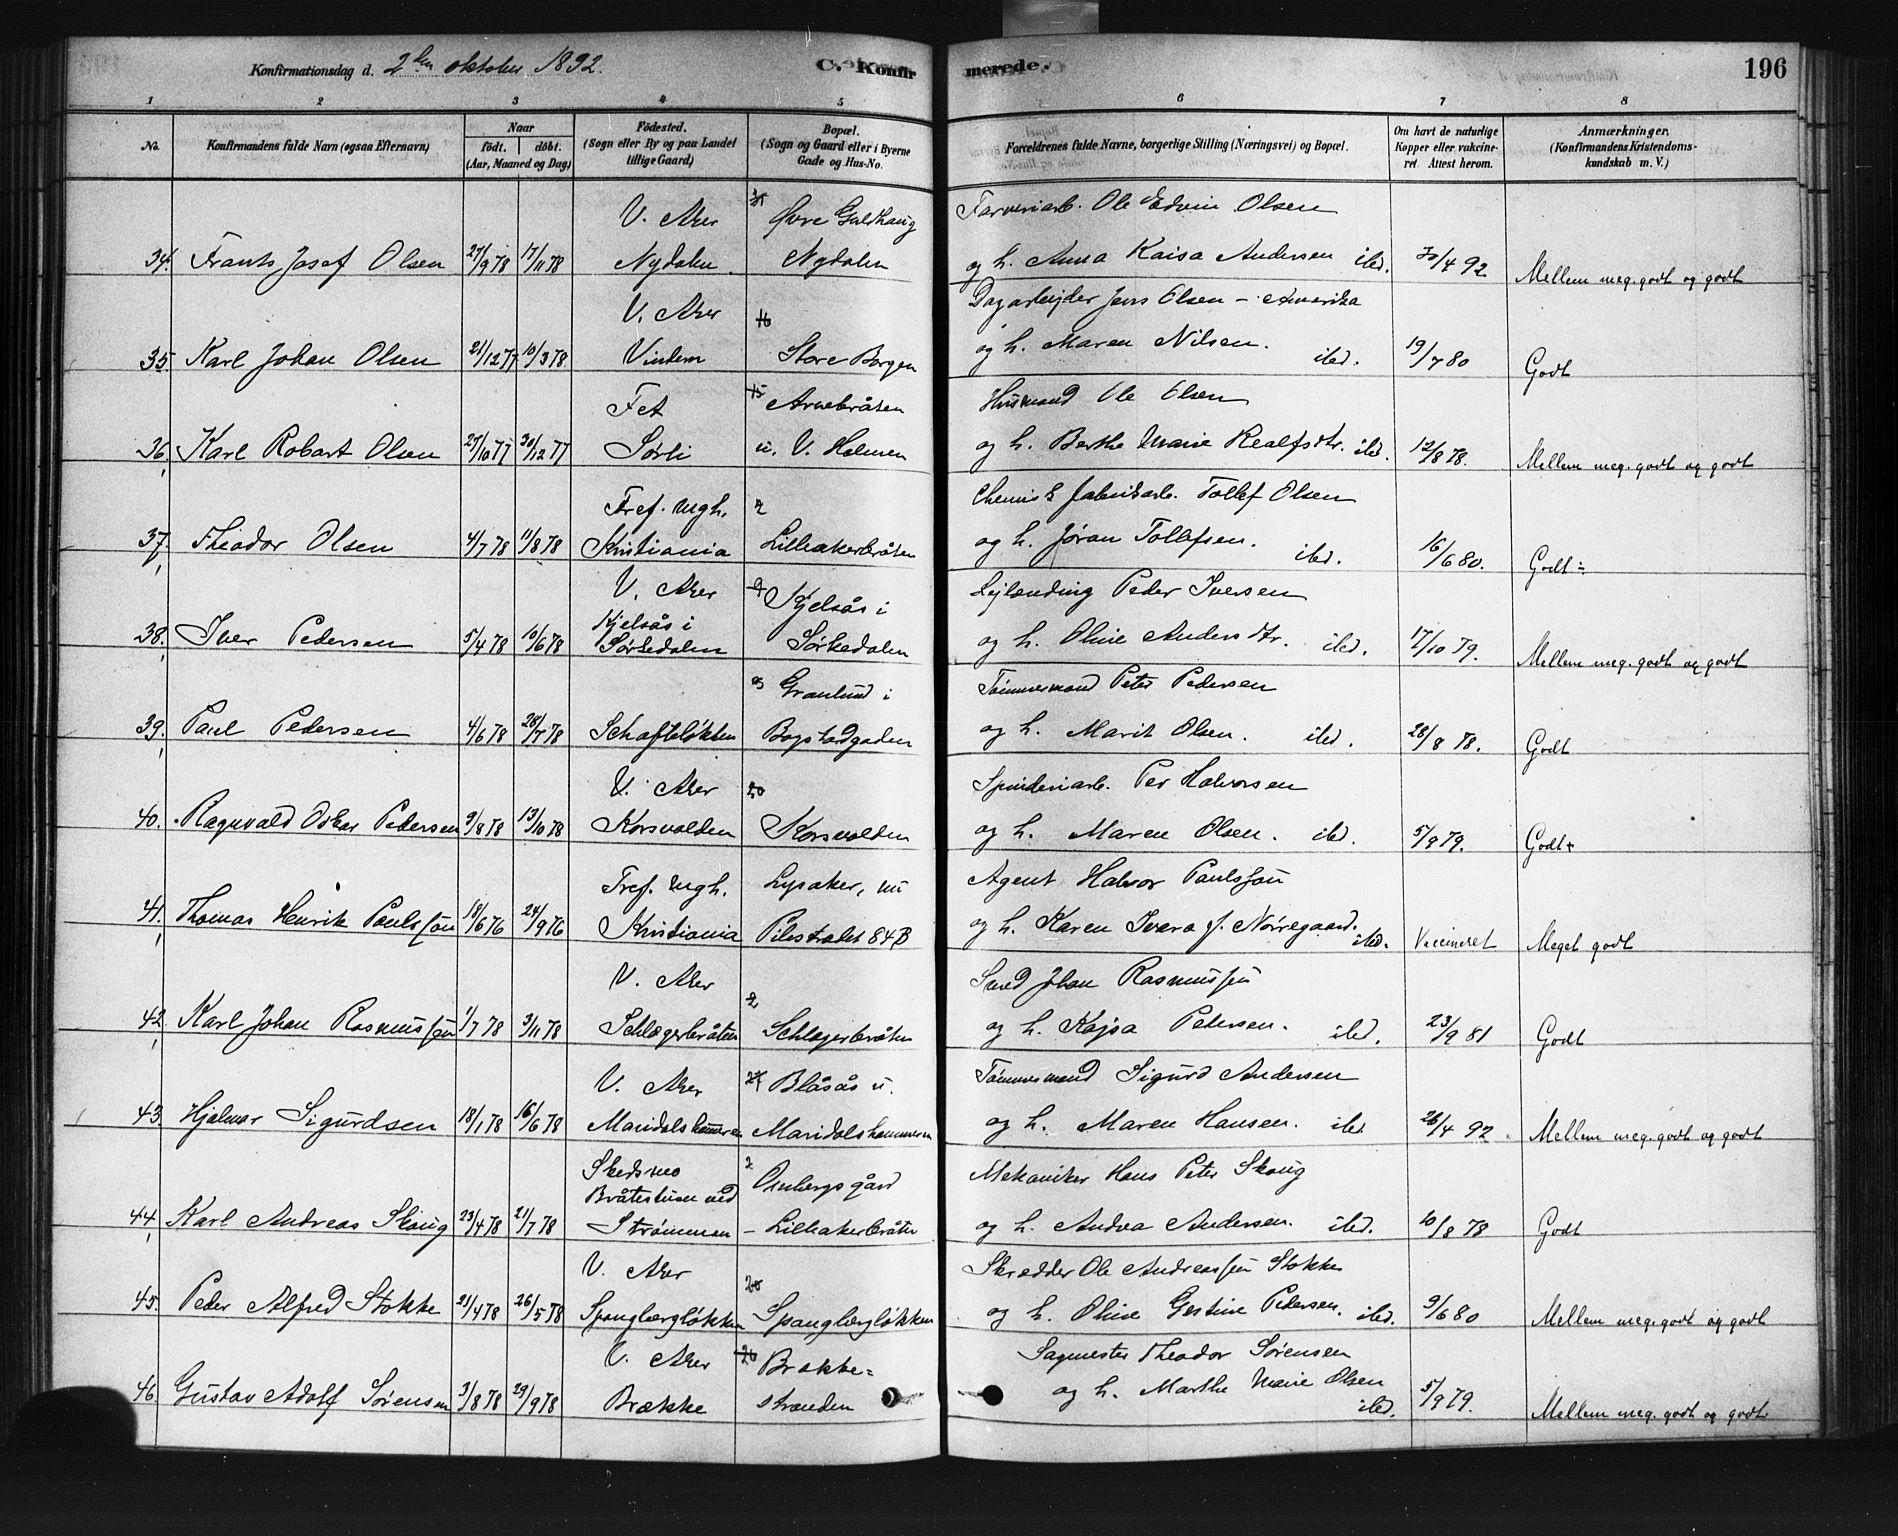 Konfirmationsdag d. 2den oktober 1892.
C. Konfirmerede.
196
1 2 3 4 5 6 7 8
No.
Konfirmandens fulde Navn (ogsaa Efternavn)
Naar
født. døbt.
(Aar, Maaned og Dag)
Fødested.
(Sogn eller By og paa Landet
tillige Gaard)
Bopæl.
(Sogn og Gaard eller i Byerne
Gade og Hus-No.
Forældrenes fulde Navne, borgerlige Stilling (Næringsvei) og Bopæl.
Om havt de naturlige
Kopper eller vakcine-
ret Attest herom.
Anmærkninger.
(Konfirmandens Kristendoms-
kundskab m. V.)
V. Aker Øvre Gulhaug Farveriarb. Ole Edvin Olsen
34. Frants Josef Olsen 27/9 78 17/11 78 Nydalen Nydalen og h. Anna Kaisa Andersen ibd. 30/4 92 Mellem meg. godt og godt
V. Aker 16 Dagarbejder Jens Olsen – Amerika
35. Karl Johan Olsen 21/12 77 10/3 78 Vindern Store Borgen og h. Maren Nilsen. ibd. 19/7 80 Godt
Fet 15 Arnebråten Husmand Ole Olsen
36. Karl Robart Olsen 27/10 77 30/12 77 Sørli u. V. Holmen og h. Berthe Marie Realfsdtr. ibd. 12/8 78. Mellem meg. godt og godt
Tref. mgh. 2 Chemisk fabrikarb. Tollef Olsen
37. Theodor Olsen 4/7 78 11/8 78 Kristiania Lilleakerbråten og h. Jøran Tollefsen. ibd. 16/6 80. Godt÷
V. Aker Kjelsås i Lejlænding Peder Iversen
38. Iver Pedersen 5/4 78 10/6 78 Kjelsås i Sørkedalen Sørkedalen og h. Oline Andersdtr. ibd. 17/10 79. Mellem meg. godt og godt
Granlund i Tømmermand Peter Pedersen
39. Paul Pedersen 4/6 78 28/7 78 Schafteløkken Bogstadgaden og h. Marit Olsen. ibd. 28/8 78. Godt
V. Aker 20 Spinderiarb. Per Halvorsen
40. Ragnvald Oskar Pedersen 9/8 78 13/10 78 Korsvolden Korsvolden og h. Maren Olsen. ibd. 5/9 79. Godt+
Tref. mgh. Lysaker, nu Agent Halvor Paulsson
41. Thomas Henrik Paulsson 18/6 76 24/9 76 Kristiania Pilestrædet 84B og h. Karen Ivara f. Nørregaard. ibd. Vaccineret Meget godt
V. Aker 2 Smed Johan Rasmussen
42 Karl Johan Rasmussen 1/7 78 3/11 78 Schlægerbråten Schlagerbråten og h. Kajsa Petersen. ibd. 23/9 81 Godt
V. Aker Blåsås u. Tømmermand Sigurd Andersen
43. Hjalmar Sigurdsen 18/1 78 16/6 78 Maridalshammeren Maridalshammeren og h. Maren Hansen. ibd. 26/4 92. Mellem meg. godt og godt
Skedsmo 2 Ornbergs gård Mekaniker Hans Peter Skaug
Bråtestuen ved
44. Karl Andreas Skaug 23/4 78 21/7 78 Strømmen – Lilleakerbråten og h. Andrea Andersen. ibd. 10/8 78 Godt
V. Aker 20 Skrædder Ole Andreassen Stokke
45. Peder Alfred Stokke 21/4 78 26/5 78 Spangbergløkken Spangbergløkken og h. Oline Gurine Pedersen. ibd. 9/6 80 Mellem meg. godt og godt
V. Aker 20 Brække= Sagmester Theodor Sørensen
46. Gustav Adolf Sørensen 3/8 78 29/9 78 Brække stranden og h. Marthe Marie Olsen ibd. 5/9 79. Mellem meg. godt og godt